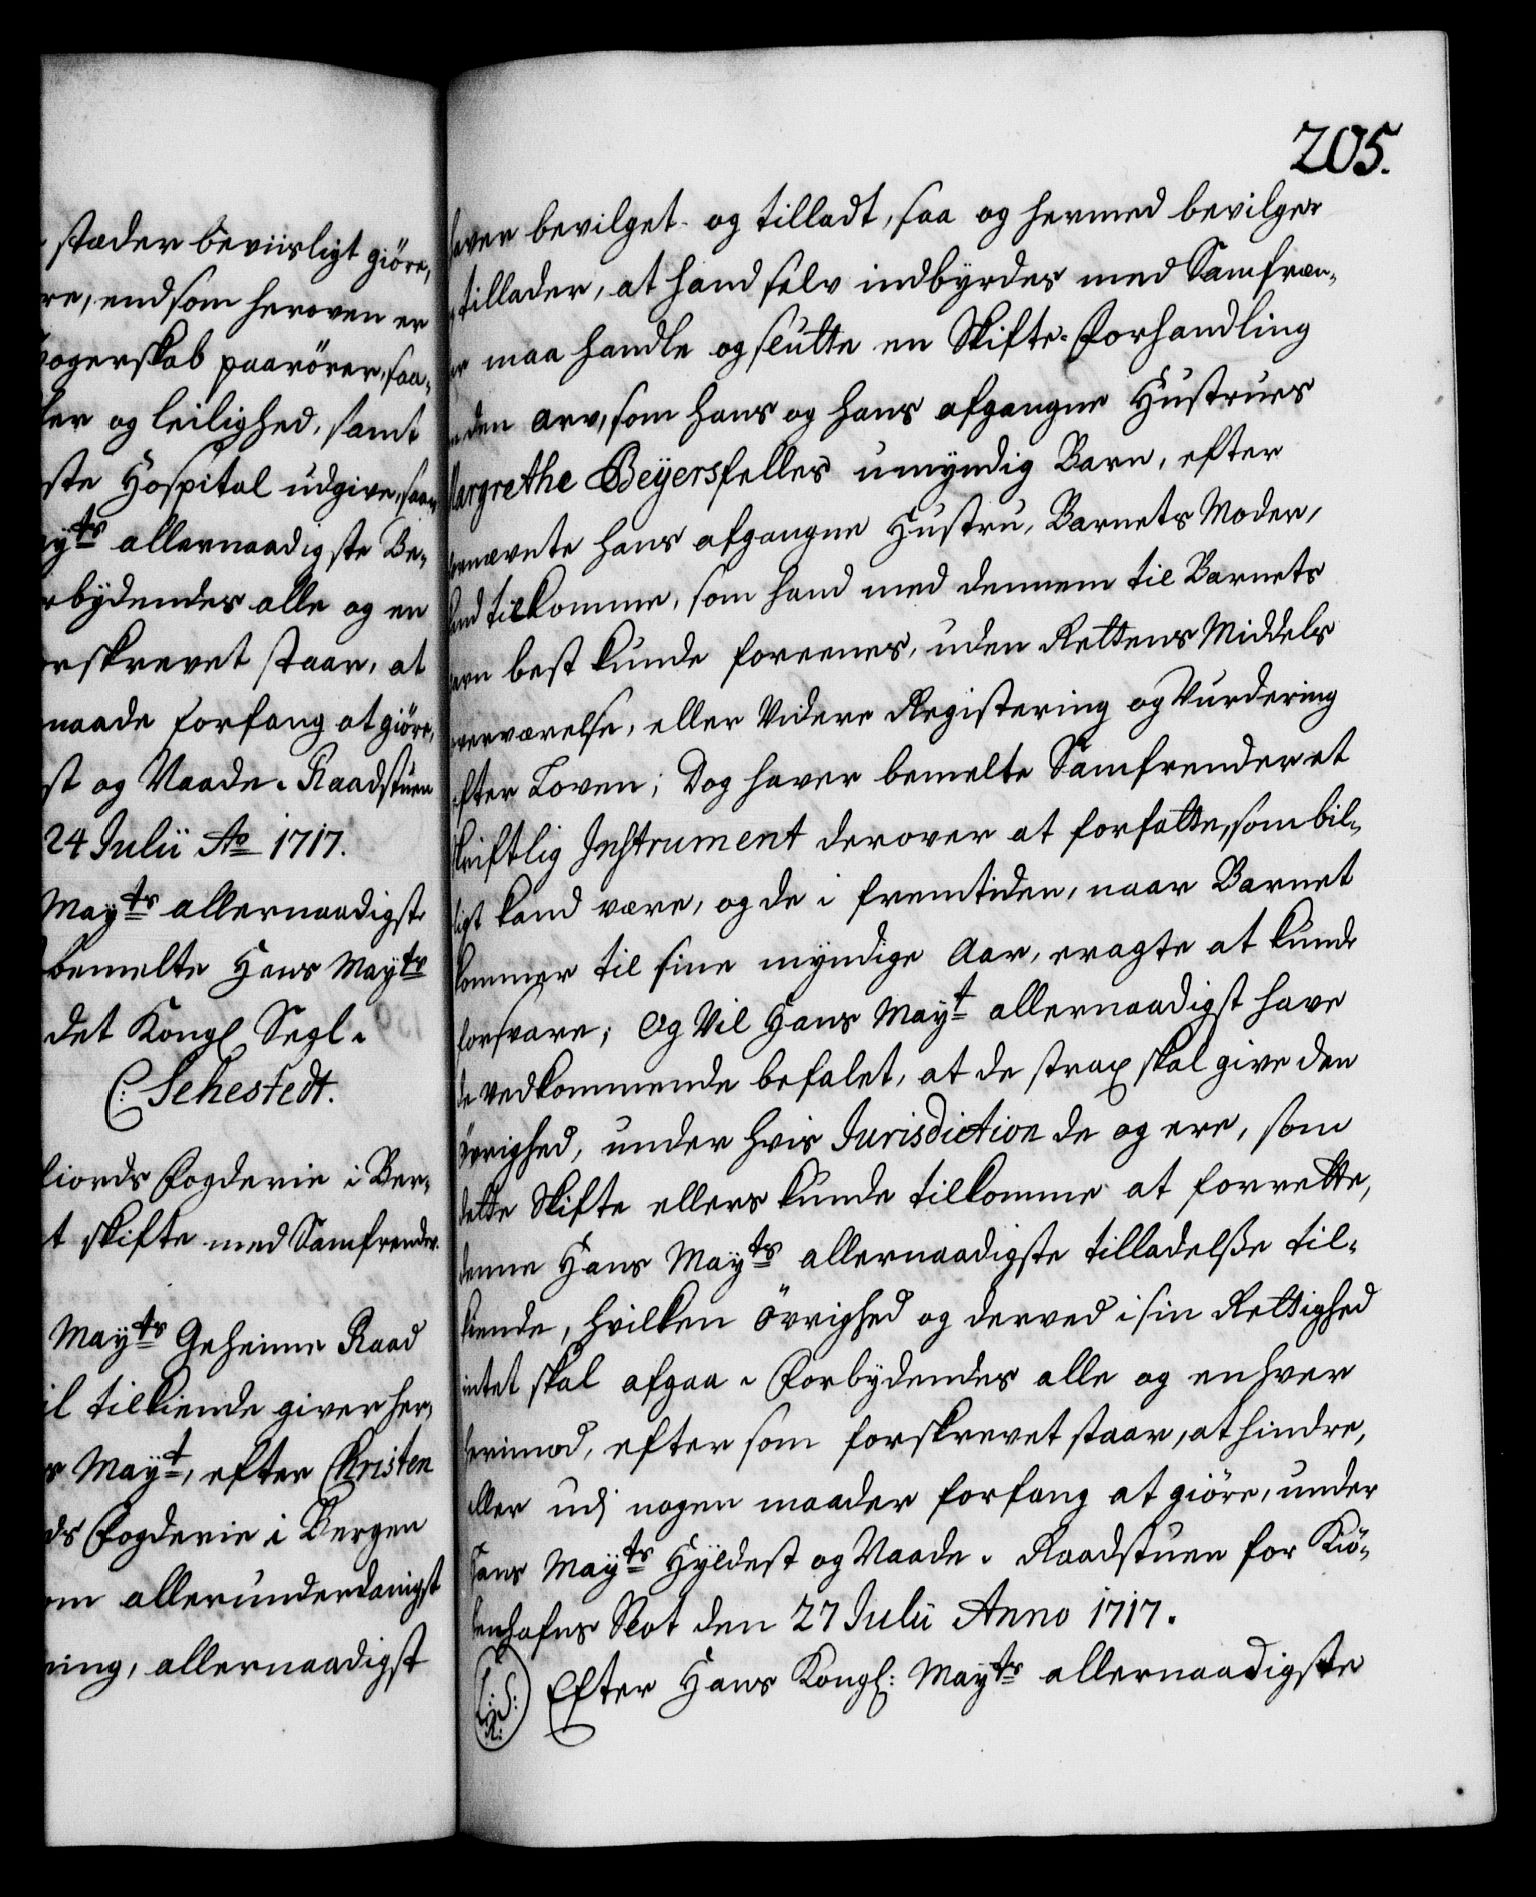 stæder beviisligt giöre,
re, end som heroven er
ogerskab paarörer, saa-
ler og leilighed, samt
ste Hospital udgive, saa
yts allernaadigste Be-
bydendes alle og en
rskrevet staar, at
maade forfang at giöre,
st og Naade. Raadstuen
24 Julii Ao 1717.
Mayts allernaadigste
bemelte Hans Mayts
det Kongl Segl.
C: Sehestedt.
fiords Fogderie i Ber-
t skifte med Samfrender.
Mayts Geheime Raad
il tilkiende giver her-
s Mayt, efter Christen
ds Fogderie i Bergen
om allerunderdanigst
ning, allernaadigst
205.
haver bevilget og tilladt, saa og hermed bevilger
tillader, at hand selv indbyrdes med Samfræn-
er maa handle og slutte en Skifte-Forhandling
den Arv, som hans og hans afgangne Hustrues
Margrethe Beÿersfelles umyndig Barn, efter
benævnte hans afgangne Hustru, Barnets Moder,
kand tilkomme, som hand med dennem til Barnets
gavn best kunde foreenes, uden Rettens Middels
overværelse, eller Videre Registering og Vurdering
efter Loven; Dog haver bemelte Samfrender et
skriftlig Instrument derover at forfatte, som bil-
ligt kand være, og de i fremtiden, naar Barnet
kommer til sine myndige Aar, eragte at kunde
forsvare; Og Vil Hans Mayt allernaadigst have
de vedkommende befalet, at de strax skal give den
Övrighed, under hvis Jurisdiction de og ere, som
dette Skifte ellers kunde tilkomme at forrette,
denne Hans Mayts allernaadigste tilladelse til-
kiende, hvilken Övrighed og derved i sin Rettighed
intet skal afgaa. Forbydendes alle og enhver
herimod, efter som forskrevet staar, at hindre,
eller udj nogen maader forfang at giöre, under
Hans Mayts Hyldest og Naade. Raadstuen for Kiö-
benhafns Slot den 27 Julii Anno 1717.
L: S: R: Efter Hans Kongl: Mayts allernaadigste